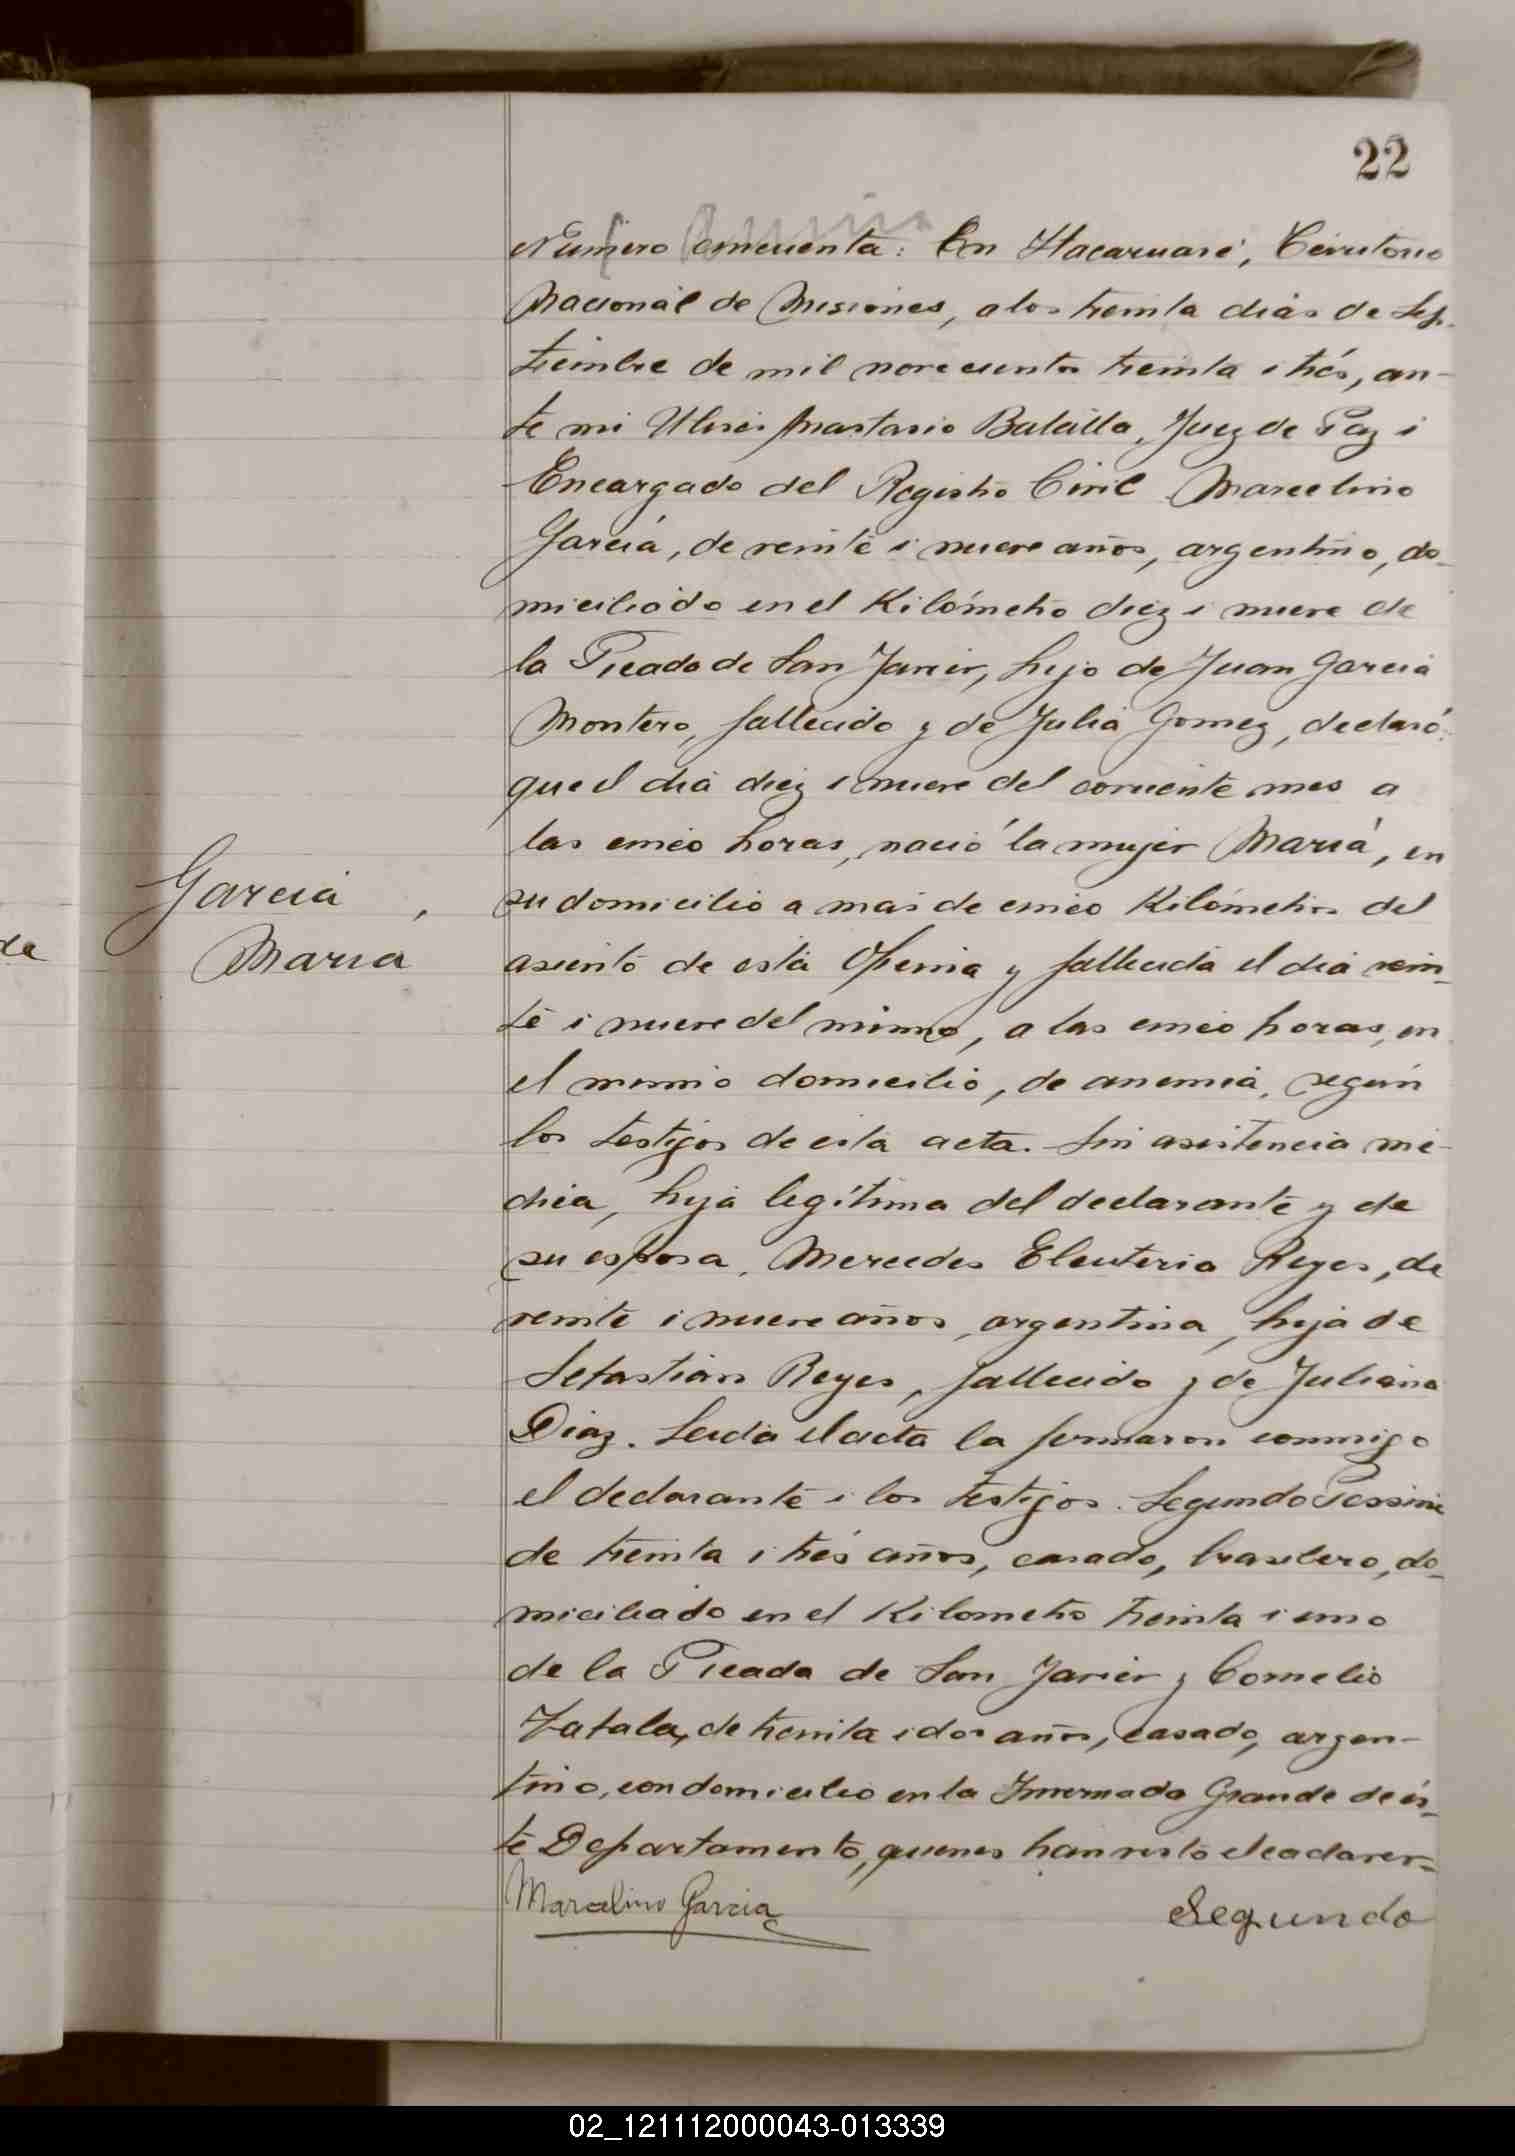 22
Número cincuenta: En Itacaruaré, Territorio
Nacional de Misiones, a los treinta dias de Sep-
tiembre de mil novecientos treinta i trés, an-
te mi Ulises Anastasio Balcilla, Juez de Paz i
Encargado del Registro Civil Marcelino
García, de veinte i nueve años, argentino, do-
miciliado en el Kilómetro diez i nueve de
la Picada de San Javier, hijo de Juan Garcia
Montero, fallecido y de Julia Gomez, declaró:
que el dia diez i nueve del corriente mes a
las cinco horas, nació la mujer María, en
su domicilio a mas de cinco Kilómetros del
asiento de esta Oficina y fallecida el dia vein-
te i nueve del mismo, a las cinco horas, en
el mismo domicilio, de anemia, según
los testigos de esta acta. Sin asistencia mé-
dica, hija legítima del declarante y de
su esposa, Mercedes Eleuteria Reyes, de
veinte i nueve años, argentina, hija de
Sebastian Reyes, fallecido y de Juliana
Diaz. Leida el acta la firmaron conmigo
el declarante i los testigos: Segundo
de treinta i trés años, casado, brasilero, do-
miciliado en el Kilometro treinta i uno
de la Picada de San Javier y Cornelio
Zatala, de treinta i dos años, casado, argen-
tino, con domicilio en la Invernada Grande de és-
te Departamento, quienes han visto el cadaver-
Garcia,
Maria
Marcelino Garcia
Segundo
da
02_121112000043-013339